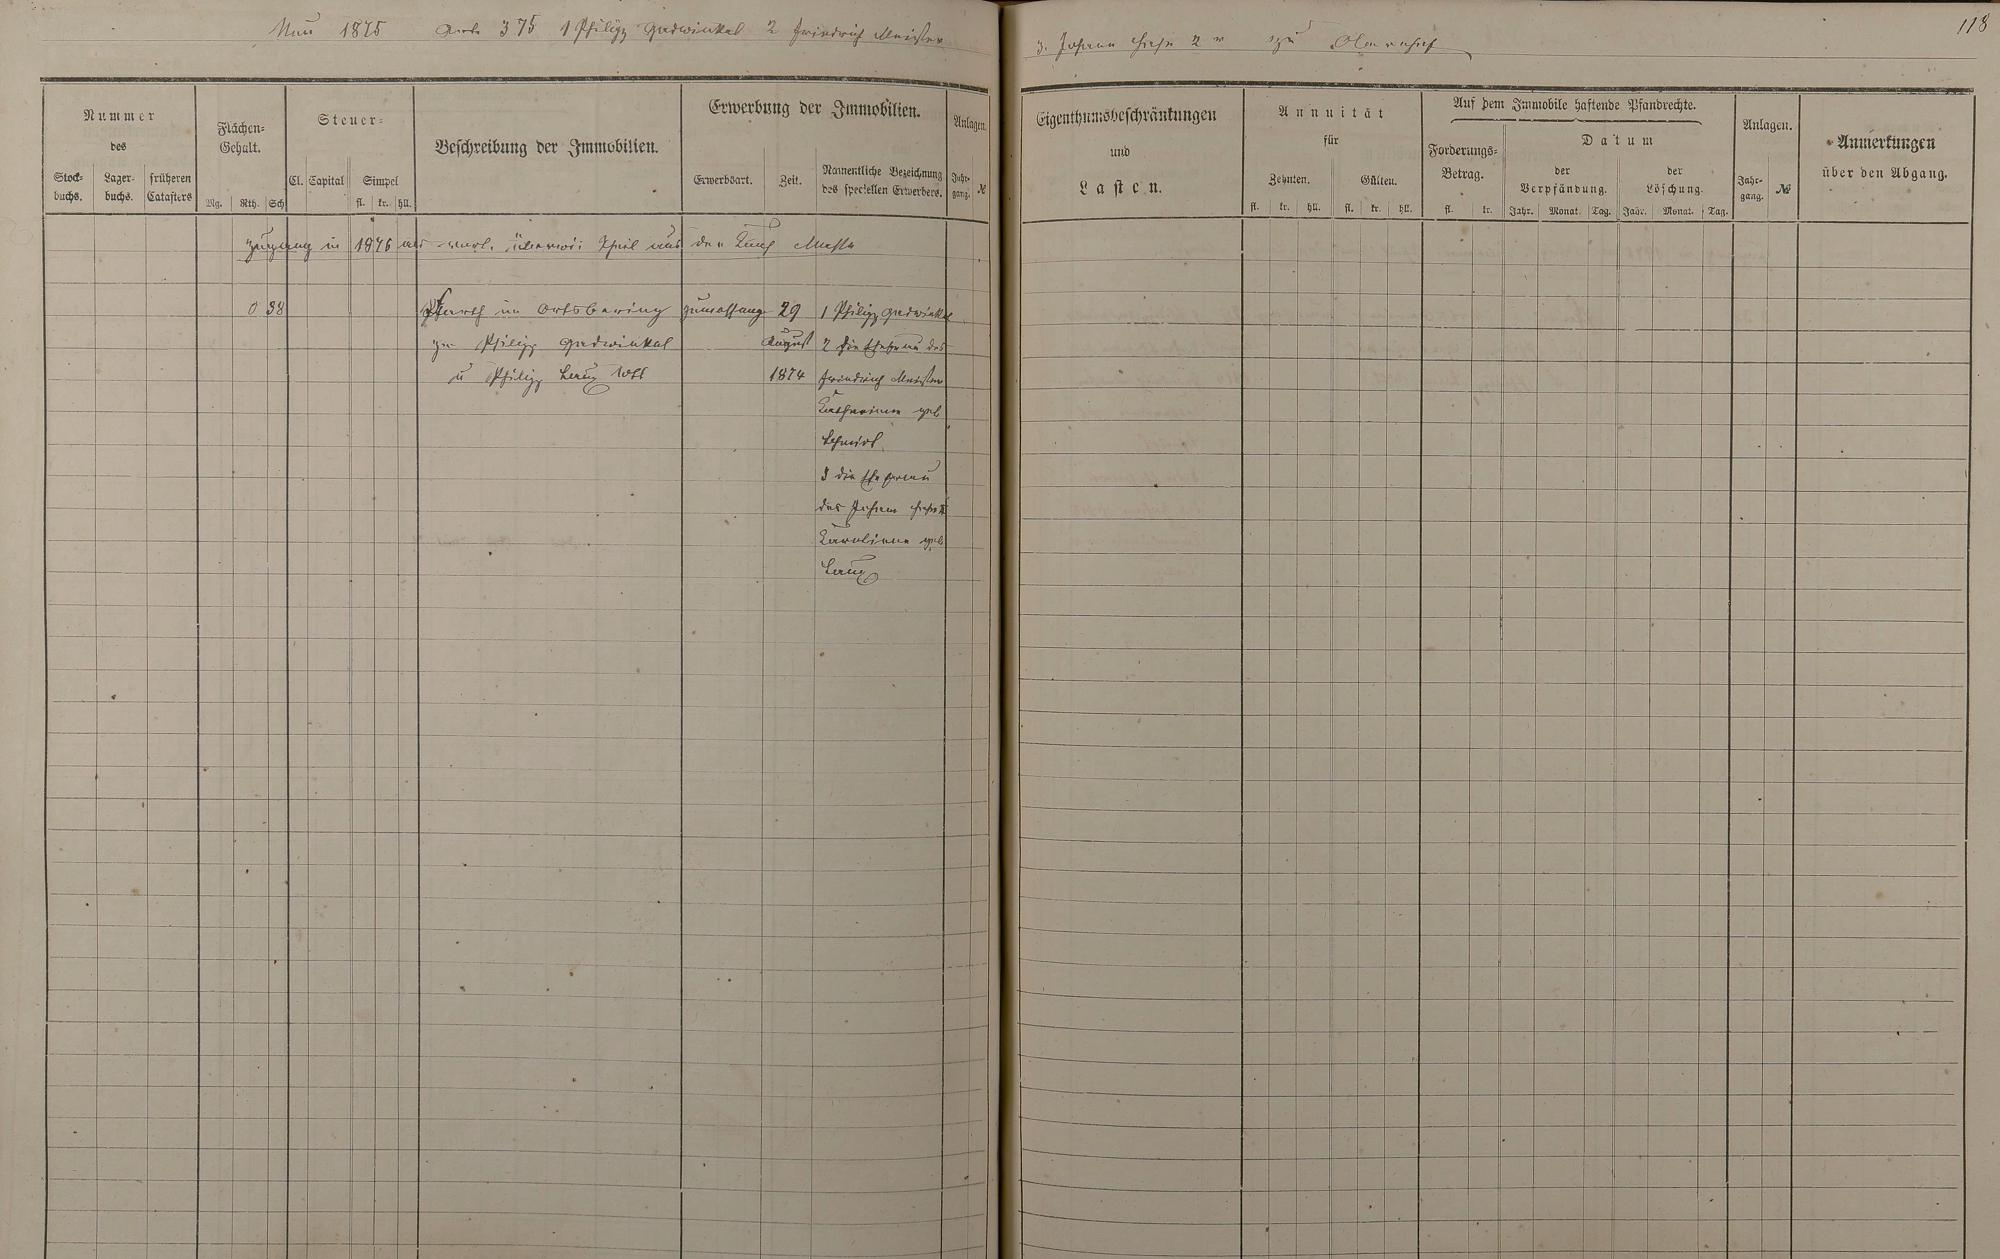 118
Neu 1875 Art. 375 1 Philipp Gadwinkel 2 Friedrich Meister
3. Johann 2r zu
Nummer
des
Stock-
buchs.
Lager-
buchs.
früheren
Catasters
Flächen-
Gehalt.
Mg. Rth. Sch
Steuer-
Cl. Capital Simpel
fl. kr. hll.
Beschreibung der Immobilien.
Erwerbung der Immobilien.
Erwerbsart. Zeit.
Namentliche Bezeichnung
des speciellen Erwerbers.
Anlagen.
Jahr-
gang. №
Eigenthumsbeschränkungen
und
Lasten.
Annuität
für
Zehnten. Gülten.
fl. kr. hll. fl. kr. hll.
Auf dem Immobile haftende Pfandrechte.
Forderungs-
Betrag.
fl. kr.
Datum
der
Verpfändung.
der
Löschung.
Jahr. Monat. Tag. Jahr. Monat. Tag.
Anlagen.
Jahr-
gang. №
Anmerkungen
über den Abgang.
Zugang in 1876 aus der Masse
0 38 im Ortsbering 29 1 Philipp Gadwinkel
zw Philipp Gadwinkel August 2 die Ehefrau des
u Philipp Lauz Wtb 1874 Friedrich Meister
Katharina geb
Schmidt
3 die Ehefrau
des Johann
Karoline geb
Lauz